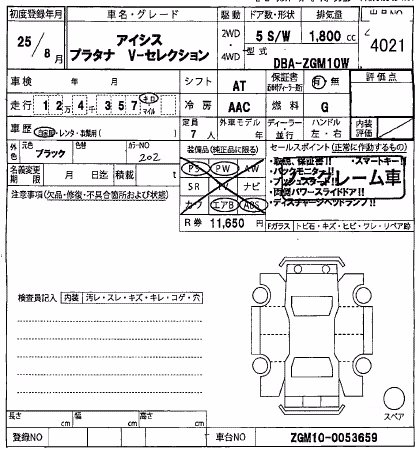 初度登録年月 車名・グレード 駆動 ドア数・形状 排気量
25/8月 アイシス プラタナ V-セレクション 2WD・4WD 5 S/W 1,800 cc 4021
型式 DBA-ZGM10W
車検 年 月 シフト AT 保証書 有 無 評価点
走行 12万4千357 キロ マイル 冷房 AAC 燃料 G
車歴 自家用・レンタ・ 定員 7人 外車モデル 年 ディーラー・並行 ハンドル 左・右 内装評価
外色 元色 ブラック 色替 カラーNO 202
装備品(純正品に限る) セールスポイント(正常に作動するもの)
名義変更期限 月 日迄 積載 t
PS PW AW
SR TV ナビ
カワ エアB ABS
・取説、保証書!! ・スマートキー!!
・バックモニター!!
・プッシュスタート!!
・両側パワースライドドア!!
・ディスチャージヘッドランプ!!
クレーム車
注意事項(欠品・修復・不具合箇所および状態)
R券 11,650円
Fガラス トビ石・キズ・ヒビ・ワレ・リペア跡
検査員記入 内装 汚レ・スレ・キズ・キレ・コゲ・穴
スペア
長さ cm 幅 cm 高さ cm
登録NO 車台NO ZGM10-0053659